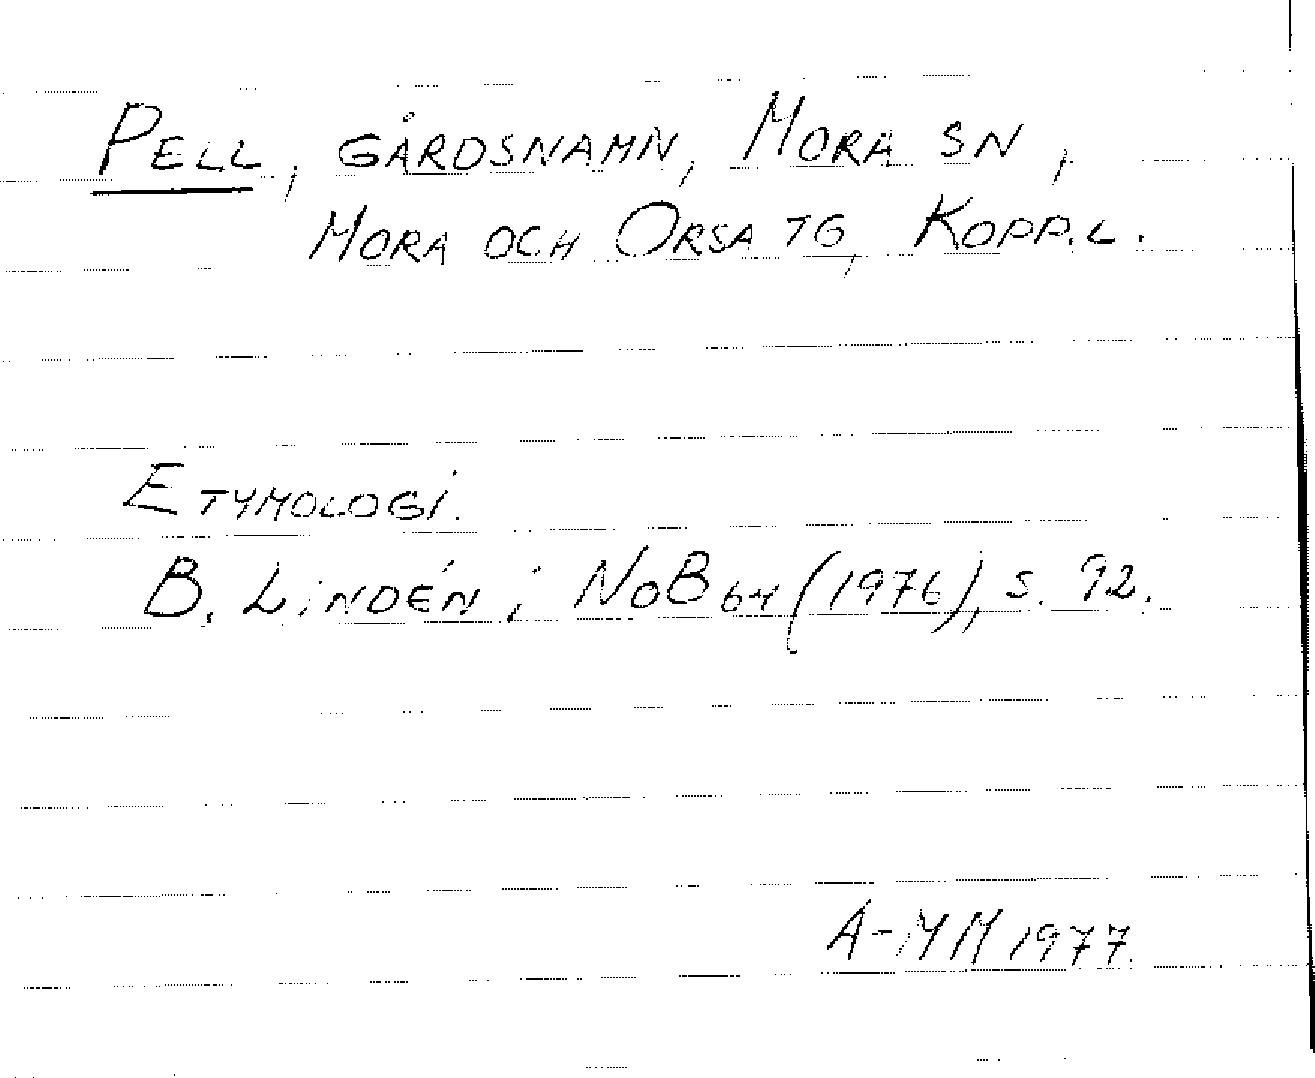 PELL, GÅRDSNAMN, MORA SN,
MORA OCH ORSA TG, KOPP.L.
ETYMOLOGI.
B. LINDÉN i NOB 64 (1976), S. 92.
A-MM 1977.